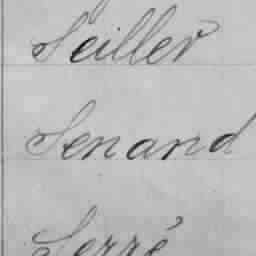 Seiller
Senand
Serré